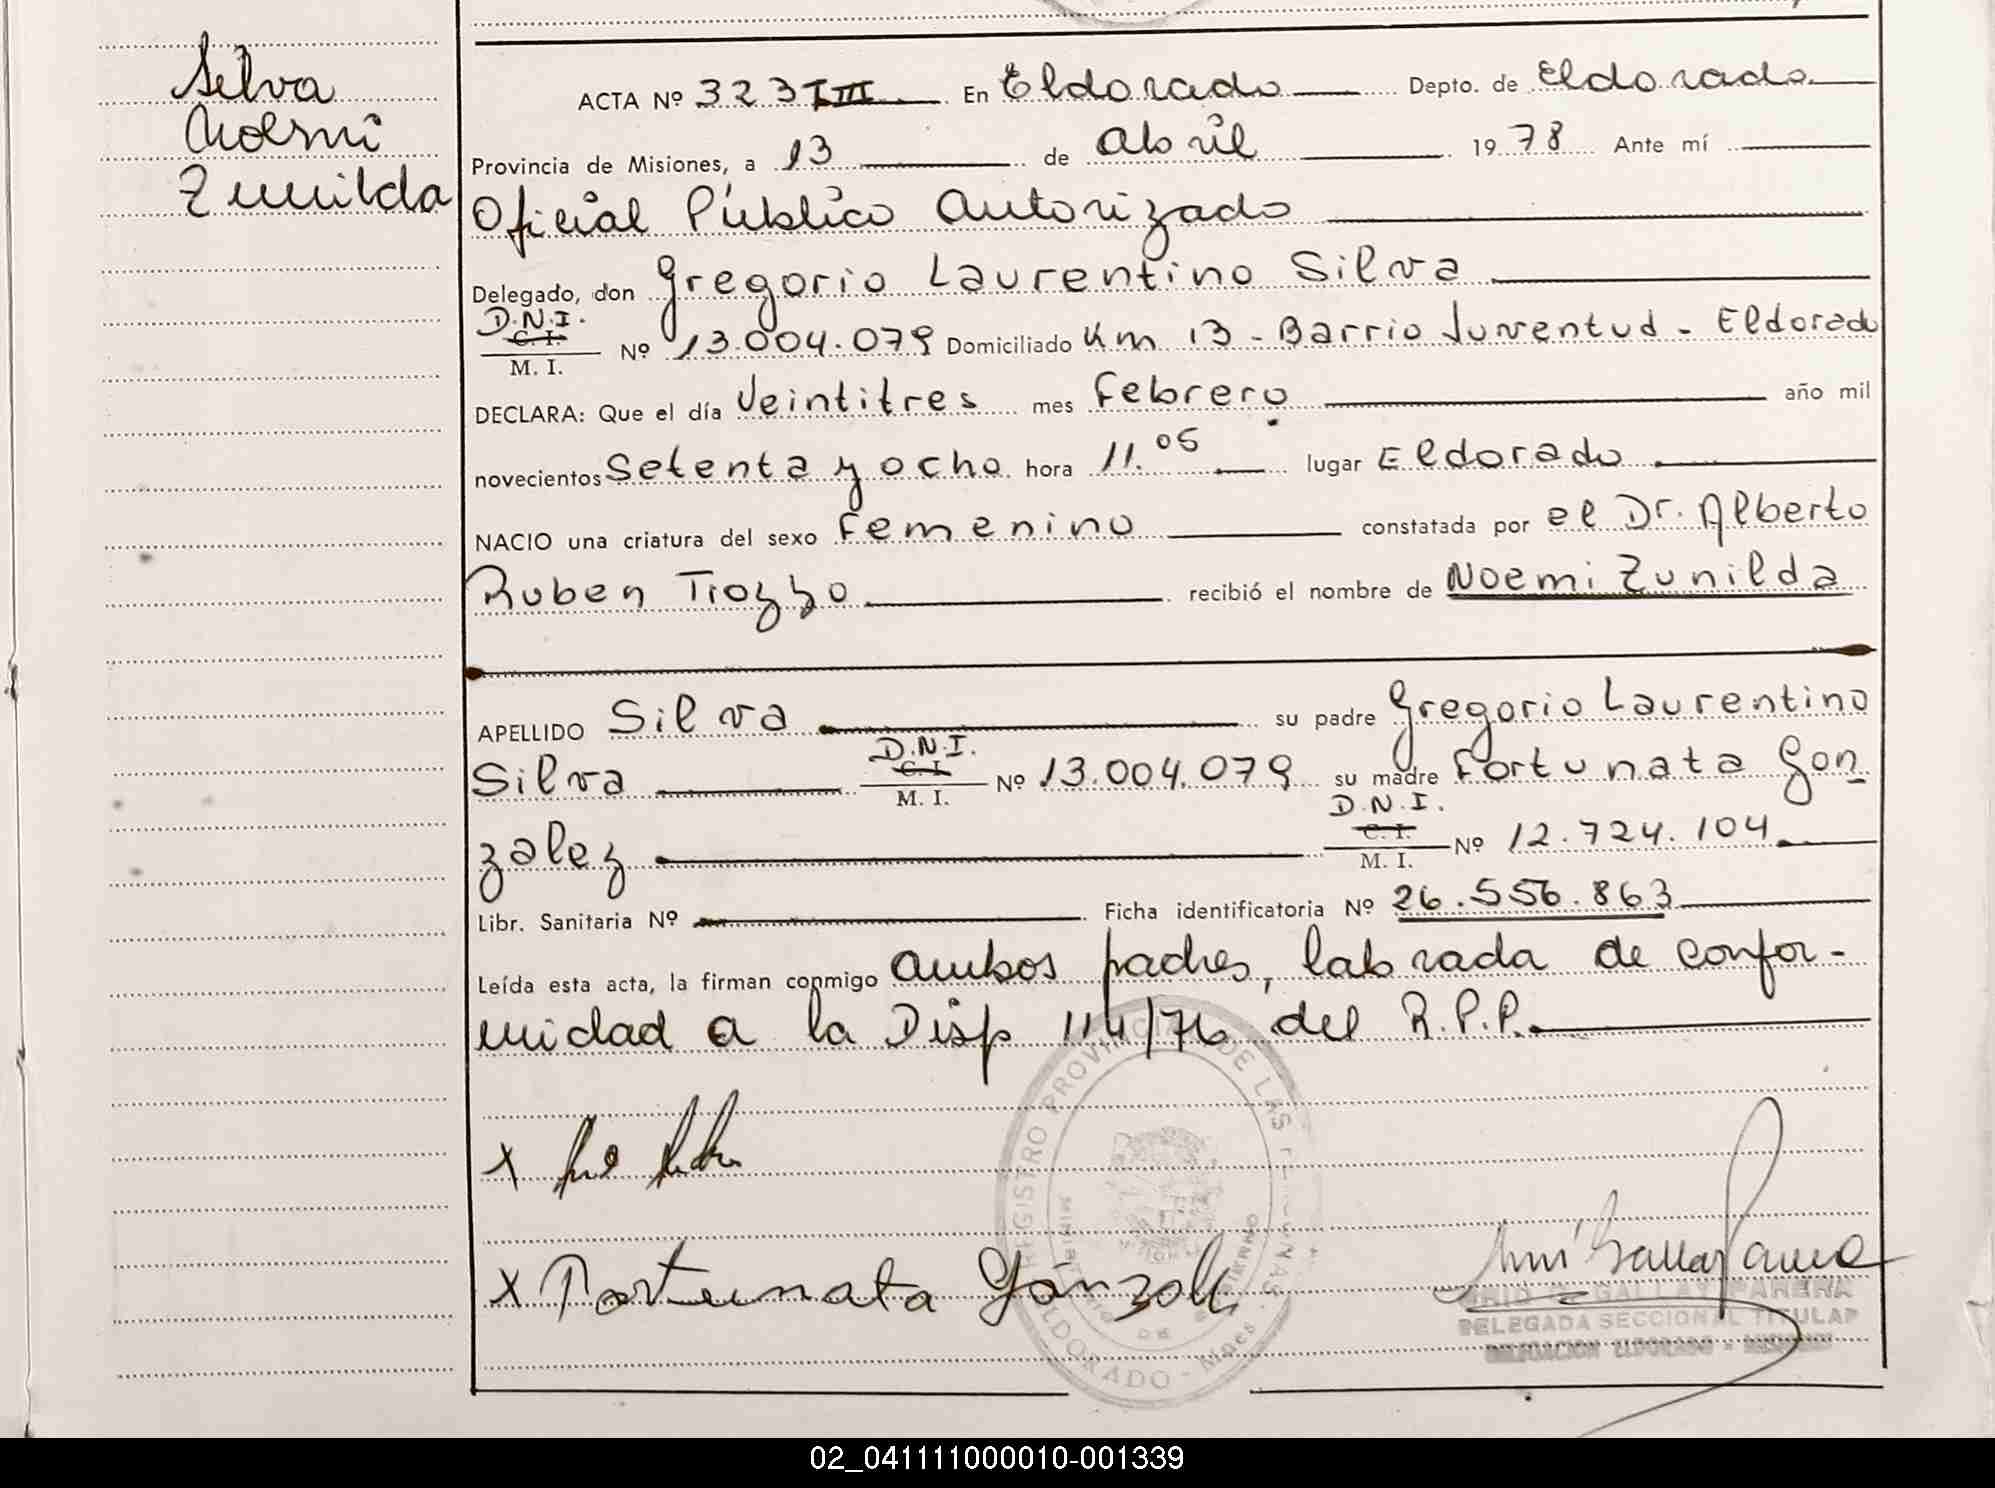 Silva
Noemi
Zunilda
ACTA Nº 323 TIII En Eldorado Depto. de Eldorado
Provincia de Misiones, a 13 de Abril 1978 Ante mí
Oficial Público Autorizado
Delegado, don Gregorio Laurentino Silva
D.N.I.
C. I.
M. I.
Nº 13.004.079 Domiciliado Km 13 - Barrio Juventud - Eldorado
DECLARA: Que el día Veintitres mes Febrero año mil
novecientos Setenta y ocho hora 11.05 lugar Eldorado
NACIO una criatura del sexo Femenino constatada por el Dr. Alberto
Ruben Trozzo recibió el nombre de Noemi Zunilda
APELLIDO Silva su padre Gregorio Laurentino
Silva D.N.I. C. I. M. I. Nº 13.004.079 su madre Fortunata Gon
zalez D.N.I. C. I. M. I. Nº 12.724.104
Libr. Sanitaria Nº Ficha identificatoria Nº 26.556.863
Leída esta acta, la firman conmigo ambos padres, labrada de confor-
midad a la Disp 114/76 del R.P.P.
REGISTRO PROVINCIAL DE LAS PERSONAS
MINISTERIO DE GOBIERNO
ELDORADO - Mnes.
X
X Fortunata Gonzalez
GALLAY PARERA
DELEGADA SECCIONAL TITULAR
DELEGACION ELDORADO - MISIONES
02_041111000010-001339